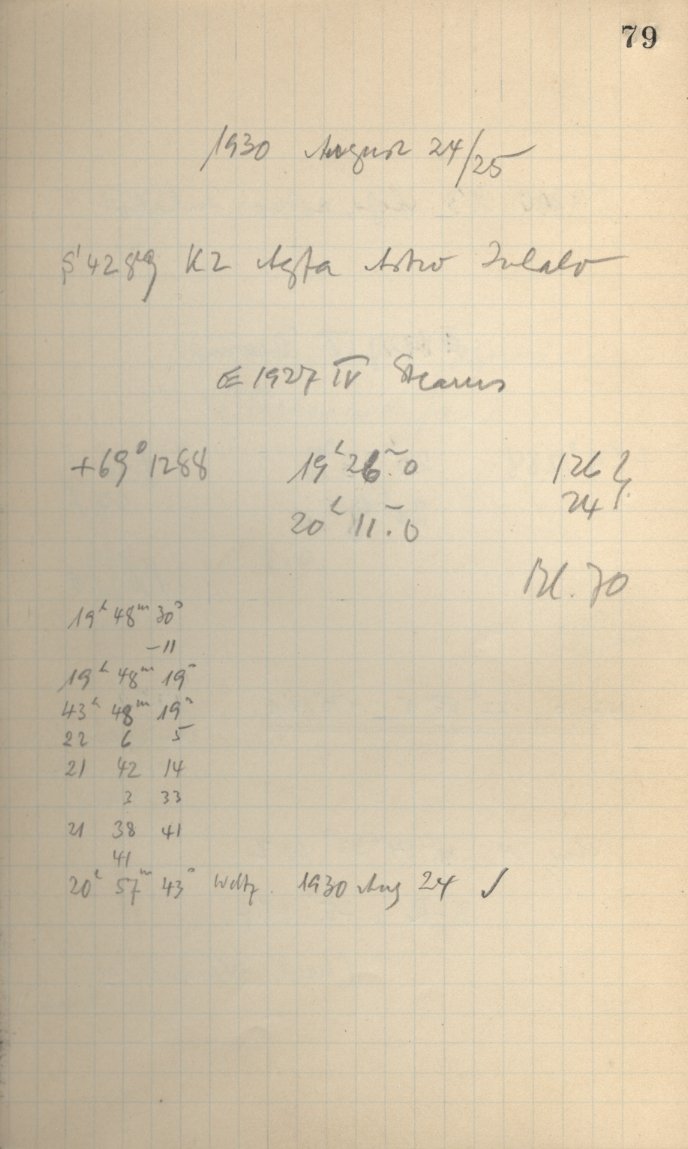 79
1930 August 24/25
K2 Agfa Astro Isolar
1927 IV Stearns
+69° 1288 19ʰ 26ᵐ.0 126
20ʰ 11ᵐ.0 24
Bl. 70
19ʰ 48ᵐ 30ˢ
-11
19ʰ 48ᵐ 19ˢ
43ʰ 48ᵐ 19ˢ
22 6 5
21 42 14
3 33
21 38 41
41
20ʰ 57ᵐ 43ˢ Weltz. 1930 Aug 24 ✓